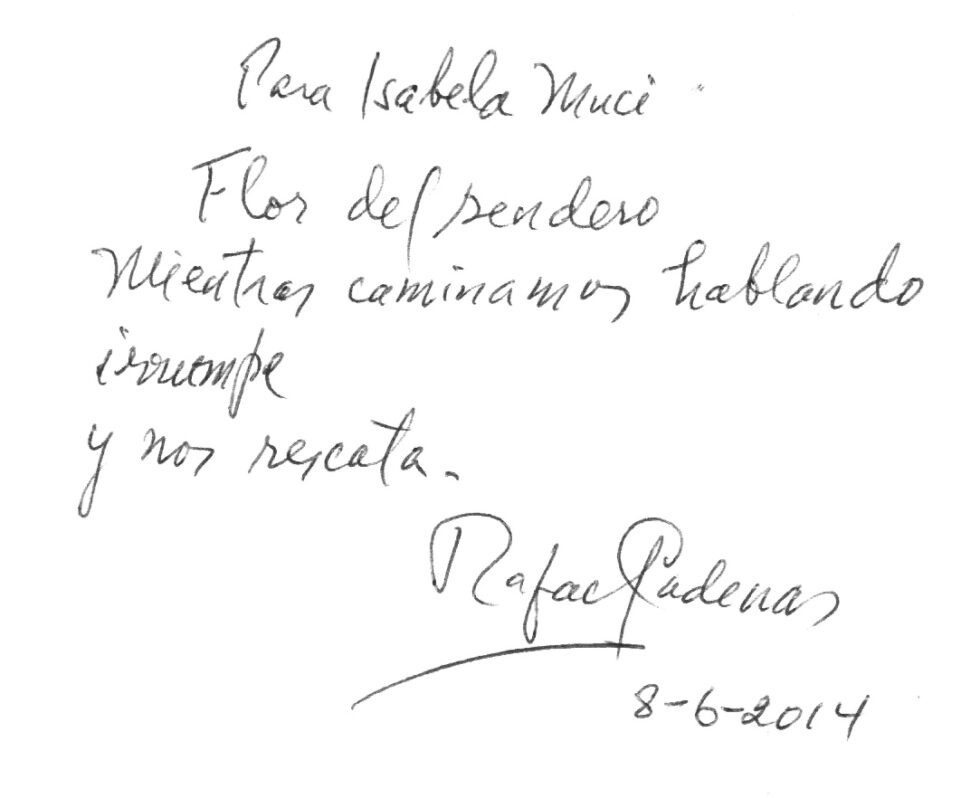 Para Isabela Muci
Flor del sendero
Mientras caminamos hablando
irrumpe
y nos rescata.
Rafael Cadenas
8-6-2014